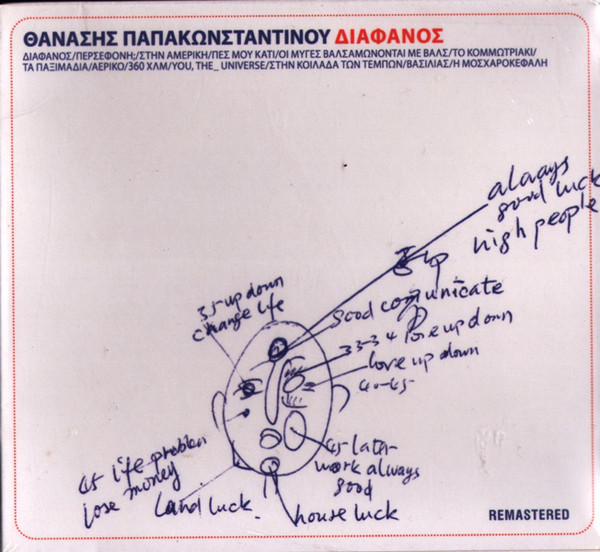 ΘΑΝΑΣΗΣ ΠΑΠΑΚΩΝΣΤΑΝΤΙΝΟΥ ΔΙΑΦΑΝΟΣ
ΔΙΑΦΑΝΟΣ/ΠΕΡΣΕΦΟΝΗ;/ΣΤΗΝ ΑΜΕΡΙΚΗ/ΠΕΣ ΜΟΥ ΚΑΤΙ/ΟΙ ΜΥΓΕΣ ΒΑΛΣΑΜΩΝΟΝΤΑΙ ΜΕ ΒΑΛΣ/ΤΟ ΚΟΜΜΩΤΡΙΑΚΙ/
ΤΑ ΠΑΞΙΜΑΔΙΑ/ΑΕΡΙΚΟ/360 ΧΛΜ/YOU, THE_ UNIVERSE/ΣΤΗΝ ΚΟΙΛΑΔΑ ΤΩΝ ΤΕΜΠΩΝ/ΒΑΣΙΛΙΑΣ/Η ΜΟΣΧΑΡΟΚΕΦΑΛΗ
always
good luck
high people
up
35 up down
change life
good comunicate
33-34 love up down
love up down
40-45
45 life problem
lose money
Land luck.
45-later
work always
good
house luck
REMASTERED